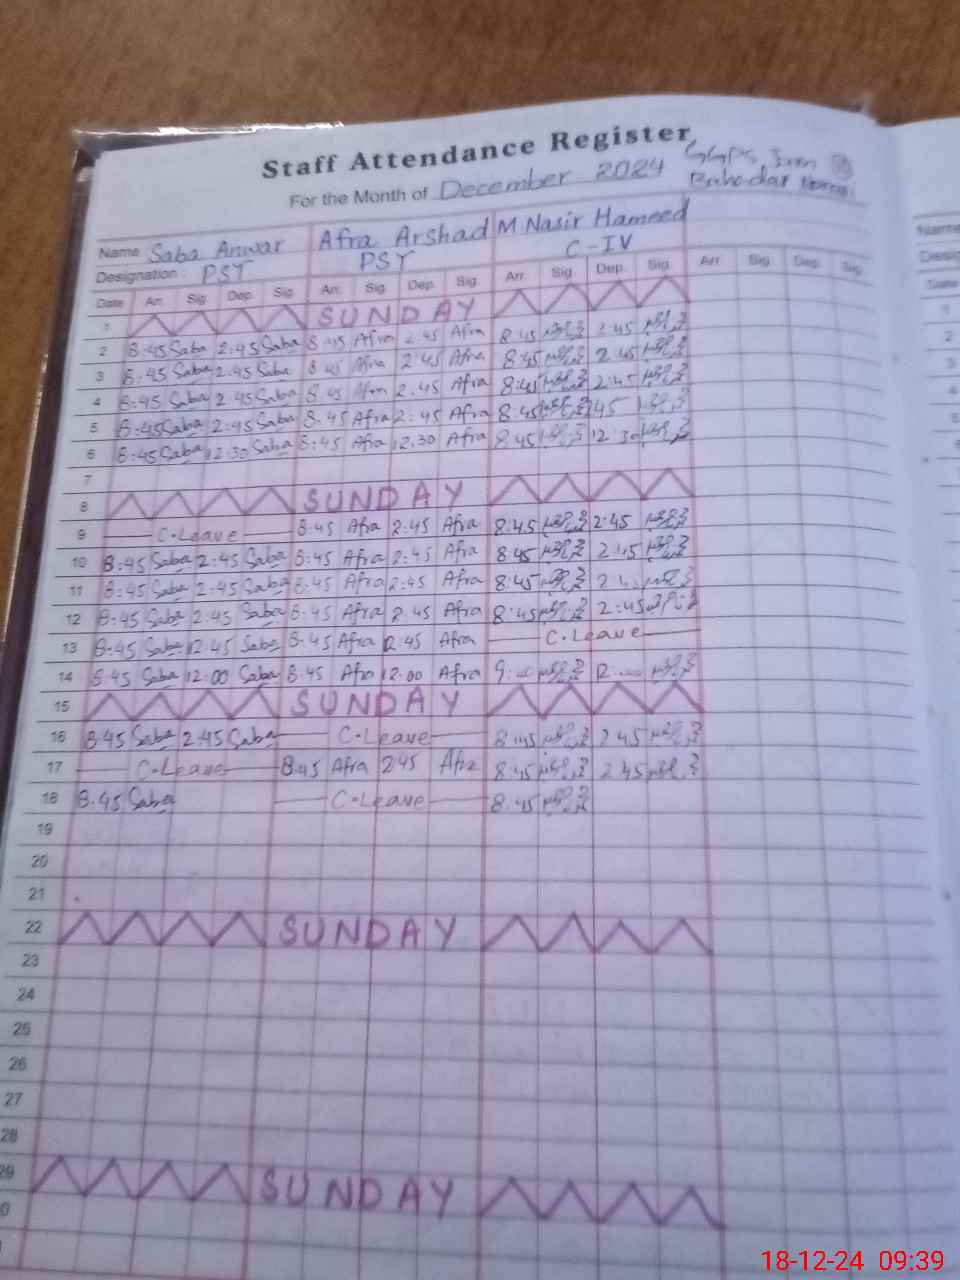 Staff Attendance Register
For the Month of December 2024 GGPS
Bahadar
Name Saba Anwar Afra Arshad M Nasir Hameed
Designation : PST PST C-IV
Date Arr. Sig. Dep. Sig. Arr. Sig. Dep. Sig. Arr. Sig. Dep. Sig. Arr. Sig. Dep. Sig.
1 SUNDAY
2 8:45 Saba 2:45 Saba 8:45 Afra 2:45 Afra 8:45 2:45
3 8:45 Saba 2:45 Saba 8:45 Afra 2:45 Afra 8:45 2:45
4 8:45 Saba 2:45 Saba 8:45 Afra 2:45 Afra 8:45 2:45
5 8:45 Saba 2:45 Saba 8:45 Afra 2:45 Afra 8:45 2:45
6 8:45 Saba 12:30 Saba 8:45 Afra 12:30 Afra 8:45 12:30
7
8 SUNDAY
9 C.Leave 8:45 Afra 2:45 Afra 8:45 2:45
10 8:45 Saba 2:45 Saba 8:45 Afra 2:45 Afra 8:45 2:45
11 8:45 Saba 2:45 Saba 8:45 Afra 2:45 Afra 8:45
12 8:45 Saba 2:45 Saba 8:45 Afra 2:45 Afra 8:45 2:45
13 8:45 Saba 12:45 Saba 8:45 Afra 12:45 Afra C.Leave
14 8:45 Saba 12:00 Saba 8:45 Afra 12:00 Afra
15 SUNDAY
16 8:45 Saba 2:45 Saba C.Leave 8:45 2:45
17 C.Leave 8:45 Afra 2:45 Afra 8:45 2:45
18 8:45 Saba C.Leave 8:45
19
20
21
22 SUNDAY
23
24
25
26
27
28
29 SUNDAY
18-12-24 09:39